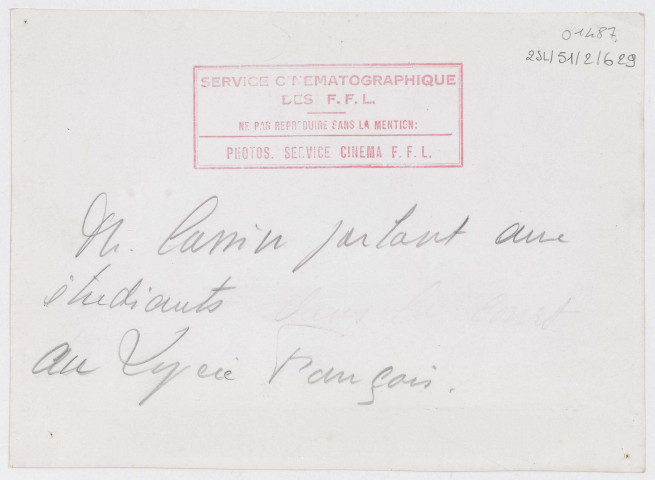 01487
2SL/51/2/629
SERVICE CINEMATOGRAPHIQUE
DES F.F.L.
NE PAS REPRODUIRE SANS LA MENTION:
PHOTOS. SERVICE CINEMA F.F.L.
M. Cassin parlant aux
étudiants
au Lycée Français.